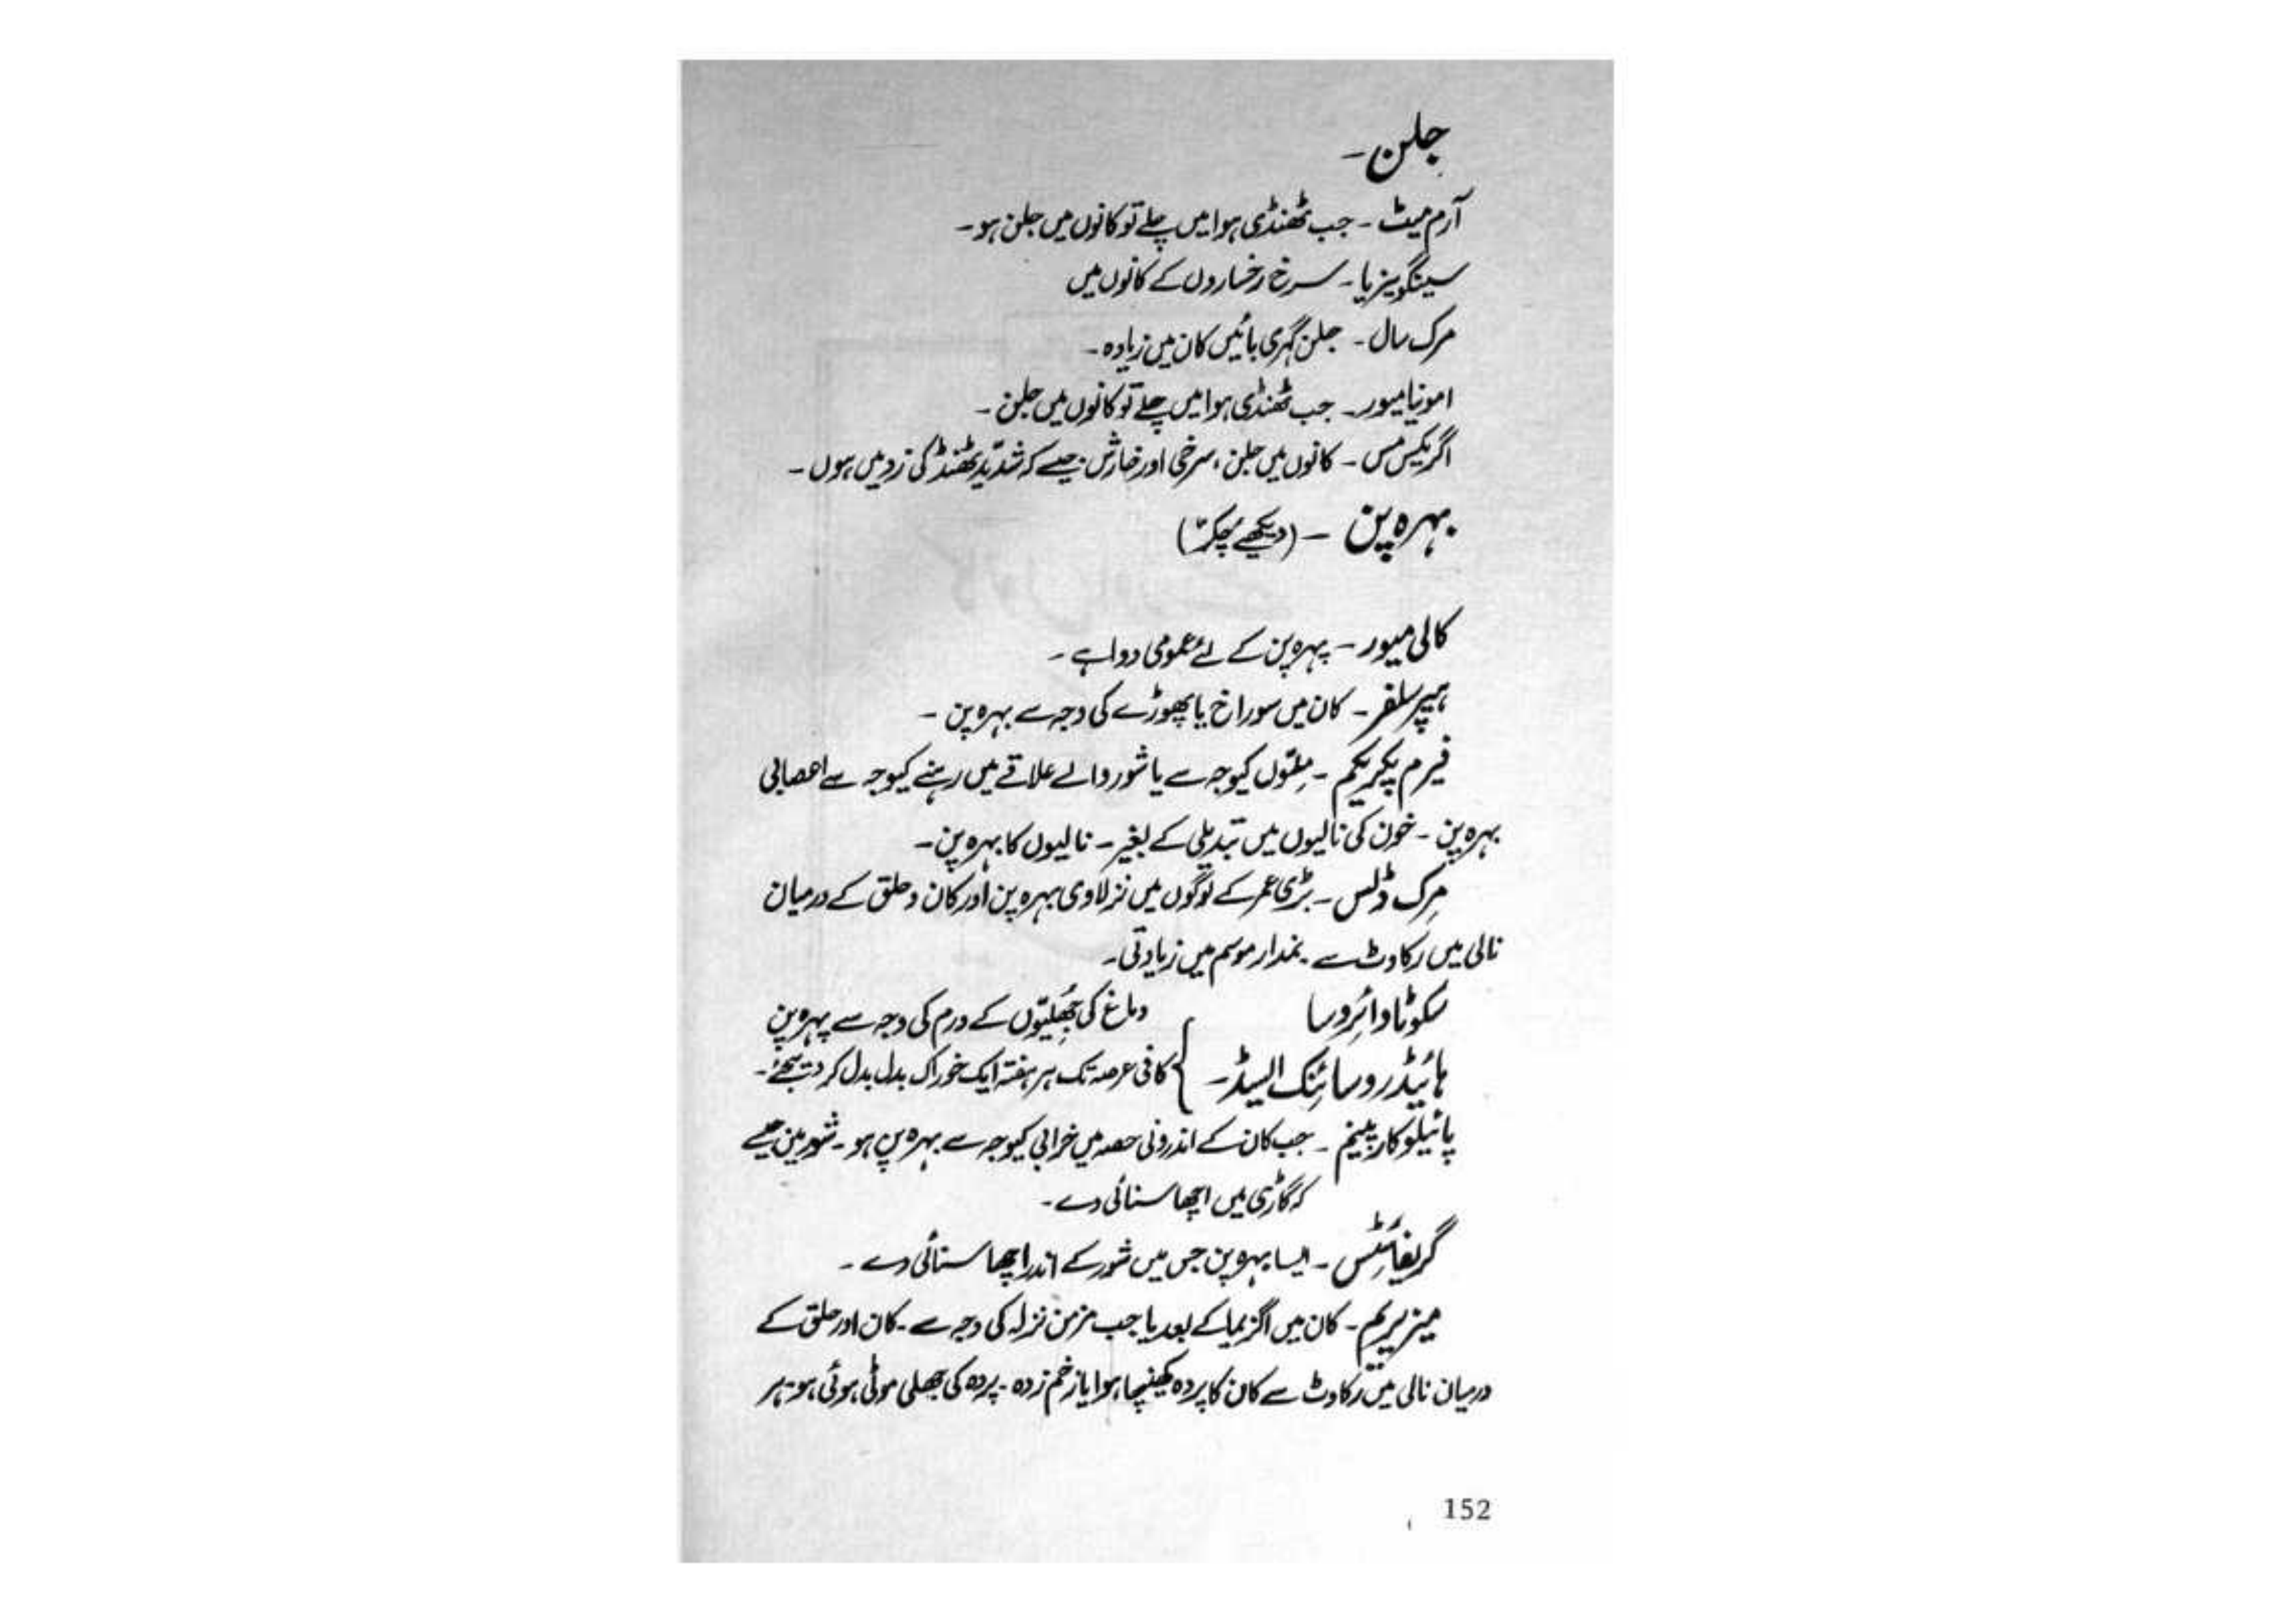 جلن ۔
آرم میٹ ۔ جب ٹھنڈی ہوا میں چلے تو کانوں میں جلن ہو ۔
سینگوینریا ۔ سرخ رخساروں کے کانوں میں
مرک سال ۔ جلن گہری بائیں کان میں زیادہ ۔
امونیا میور ۔ جب ٹھنڈی ہوا میں چلے تو کانوں میں جلن ۔
اگریکس مس ۔ کانوں میں جلن ، سرخی اور خارش ۔ جیسے کہ شدید ٹھنڈ کی زد میں ہوں ۔
بہرہ پن ۔ (دیکھیے "چکر")
کالی میور ۔ بہرہ پن کے لئے عمومی دوا ہے ۔
ہیپر سلفر ۔ کان میں سوراخ یا پھوڑے کی وجہ سے بہرہ پن ۔
فیرم پکریکم ۔ کیوجہ سے یا شور والے علاقے میں رہنے کیوجہ سے اعصابی
بہرہ پن ۔ خون کی نالیوں میں تبدیلی کے بغیر ۔ نالیوں کا بہرہ پن ۔
مرک ڈلس ۔ بڑی عمر کے لوگوں میں نزلاوی بہرہ پن اور کان و حلق کے درمیان
نالی میں رکاوٹ سے ۔ نمدار موسم میں زیادتی ۔
سکوٹا وائروسا } دماغ کی جھلیّوں کے ورم کی وجہ سے بہرہ پن
ہائیڈروسائنک ایسڈ ۔ } کافی عرصہ تک ہر ہفتہ ایک خوراک بدل بدل کر دیجئے ۔
پائیلوکارپینم ۔ جب کان کے اندرونی حصہ میں خرابی کیوجہ سے بہرہ پن ہو ۔ شور میں جیسے
کہ گاڑی میں اچھا سنائی دے ۔
گریفائٹس ۔ ایسا بہرہ پن جس میں شور کے اندر اچھا سنائی دے ۔
میزیریم ۔ کان میں اگزیما کے بعد یا جب مزمن نزلہ کی وجہ سے ۔ کان اور حلق کے
درمیان نالی میں رکاوٹ سے کان کا پردہ کھینچا ہوا یا زخم زدہ ۔ پردہ کی جھلی موٹی ہوئی ہو ۔ ہر
152